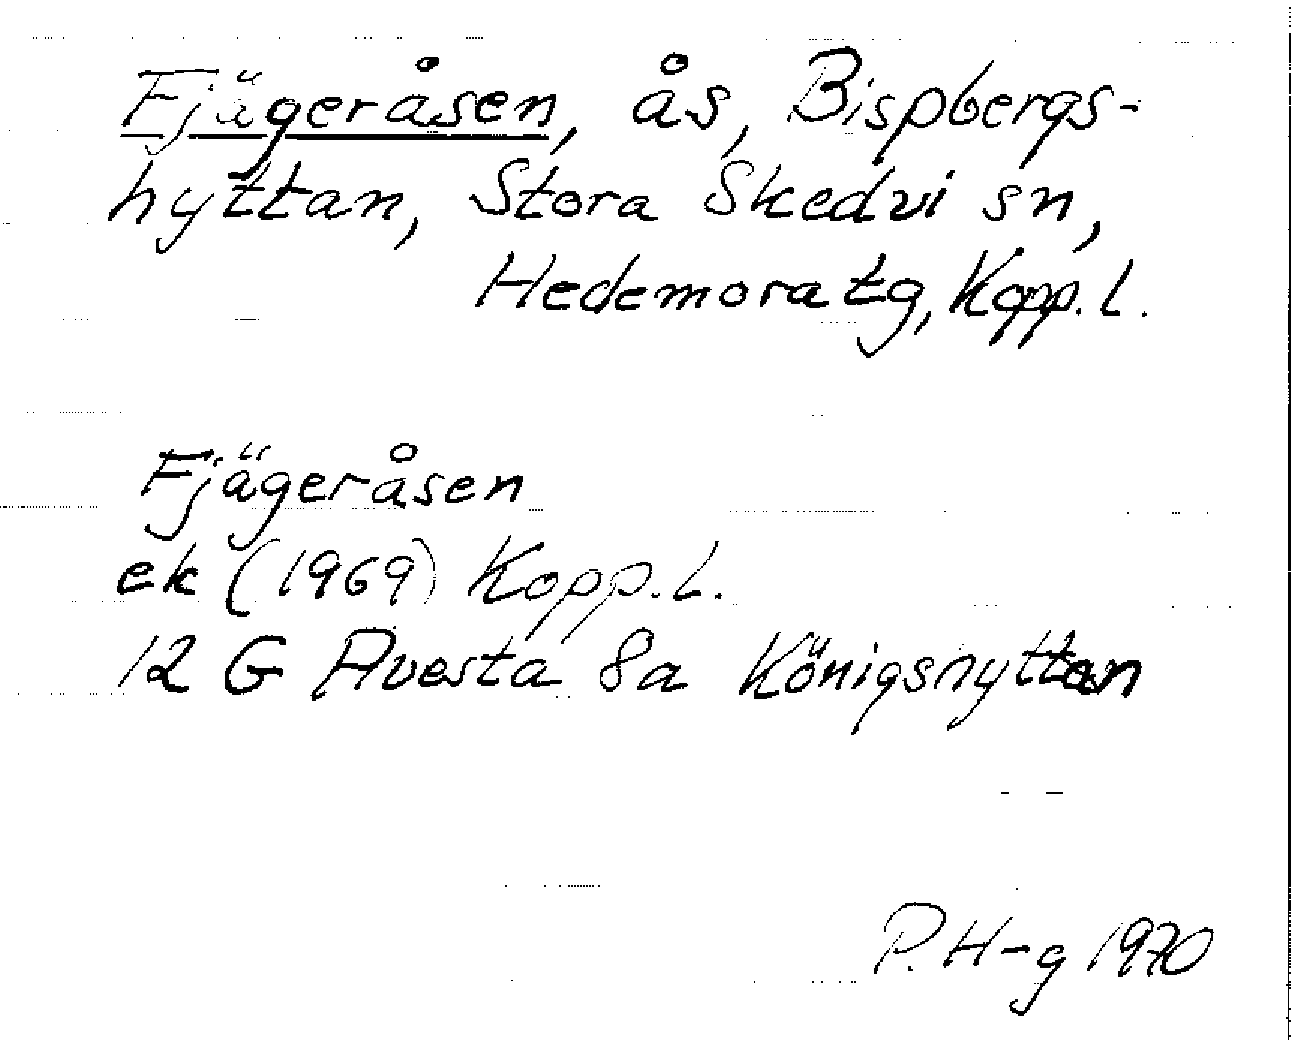 Fjägeråsen, ås, Bispbergs-
hyttan, Stora Skedvi sn,
Hedemora tg, Kopp. l.
Fjägeråsen
ek (1969) Kopp. L.
12 G Avesta 8a Königshyttan
P. H-g 1970